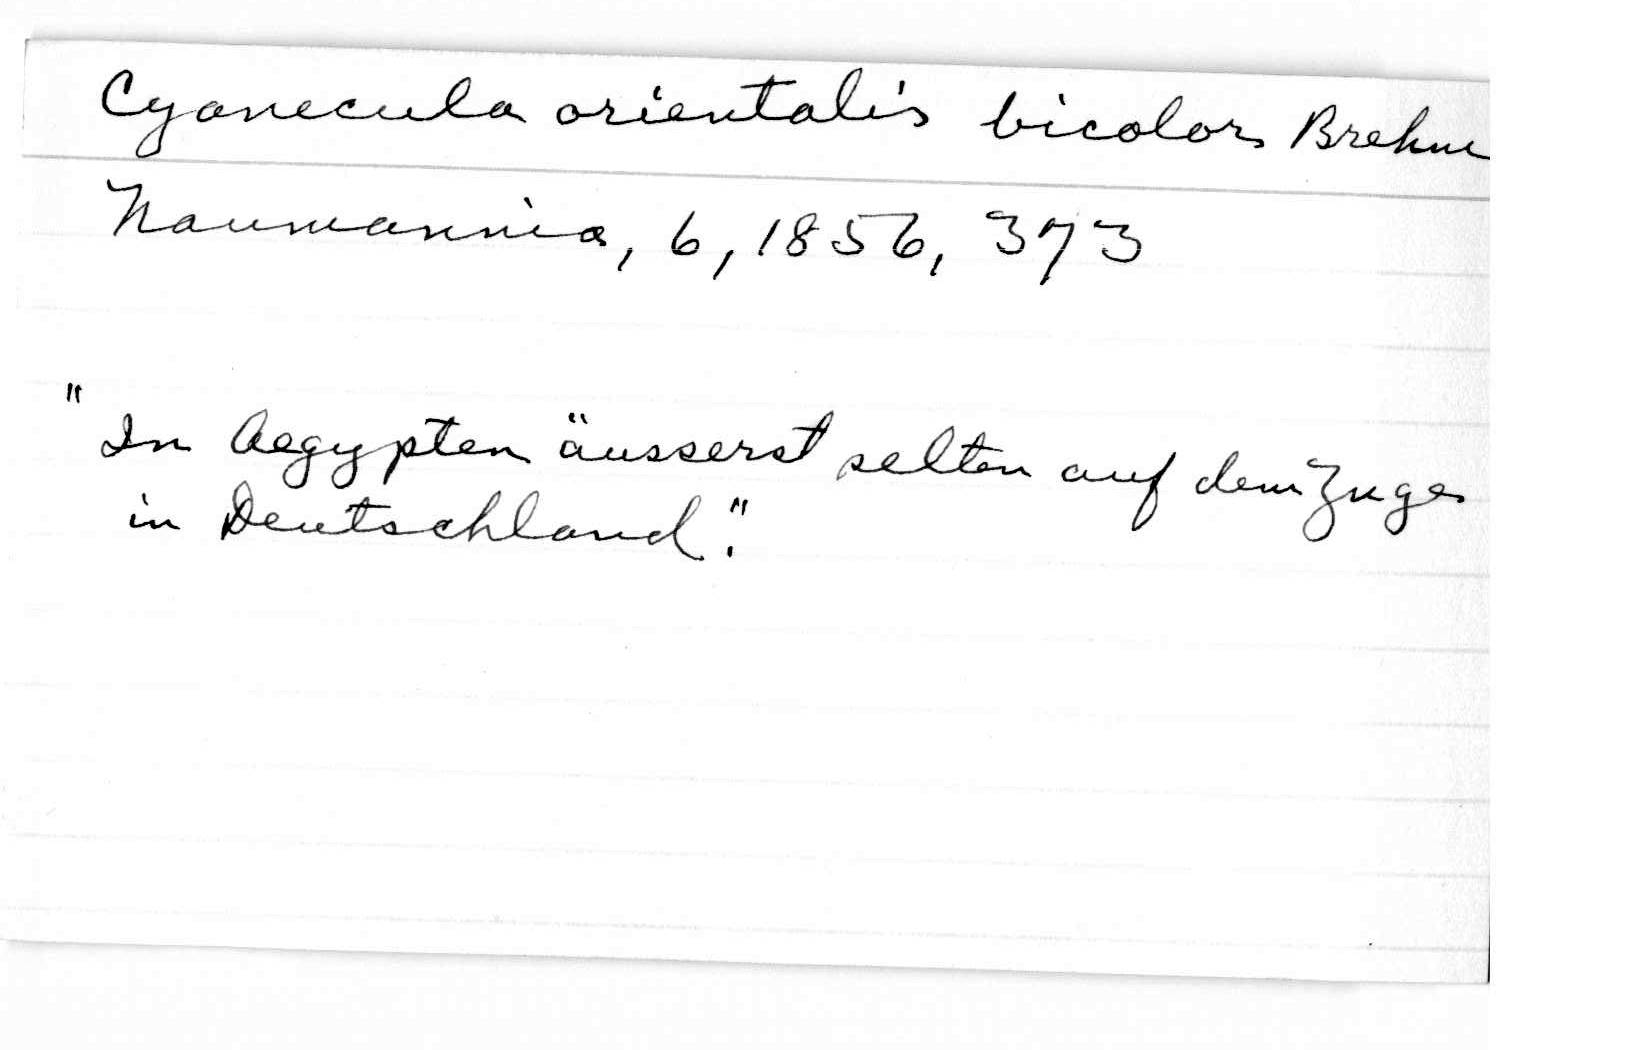 Cyanecula orientalis bicolor Brehm
Naumannia, 6, 1856, 373
"In Aegypten äusserst selten auf dem Zuge
in Deutschland."